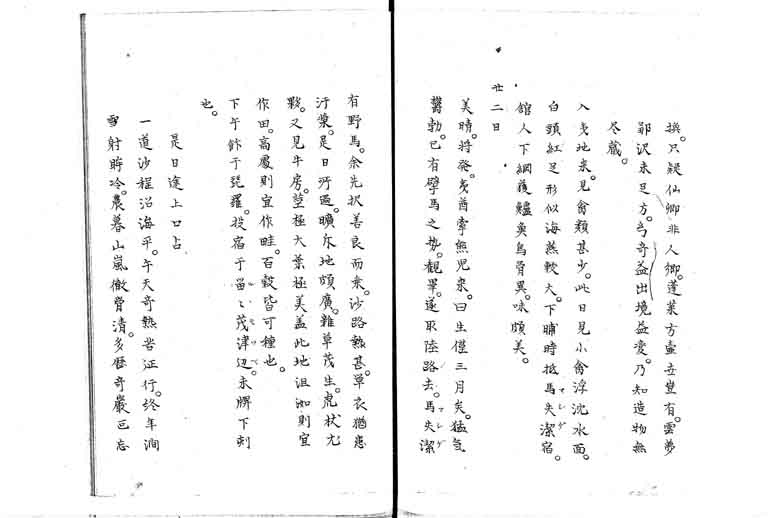 撲。只疑仙郷非人郷。蓬莱方壷豈有。雲夢
鄙沢未足方。奇益出境益愛。乃知造物無
尽蔵。
入夷地来。見禽類甚少。此日見小禽浮沈水面。
白頭紅足形似海燕較大。下晡時抵馬失潔宿。
マシケ
館人下網獲鱸奐烏骨異。味頗美。
廿二日
美晴。将発。夷酋牽熊児来。曰生僅三月矣。猛気
鬱勃。已有擘馬之勢。観畢。遂取陸路去。馬失潔
マシケ
有野馬。余先択善良而乗。沙路熱甚。単衣猶患
汗漿。是日所過。曠斥地頗廣。雜草茂生。虎状尤
夥。又見牛房。莖極大葉極美盖此地沮洳則宜
作田。高處則宜作畦。百穀皆可種也。
下午餅于琵羅。投宿于畄々茂津辺。未牌下刻
也。
是日途上口占
一道沙程沿海平。午天奇熱苦征行。終年澗
雪射眸冷。晨暮山嵐徹骨清。多歴奇巌已忘